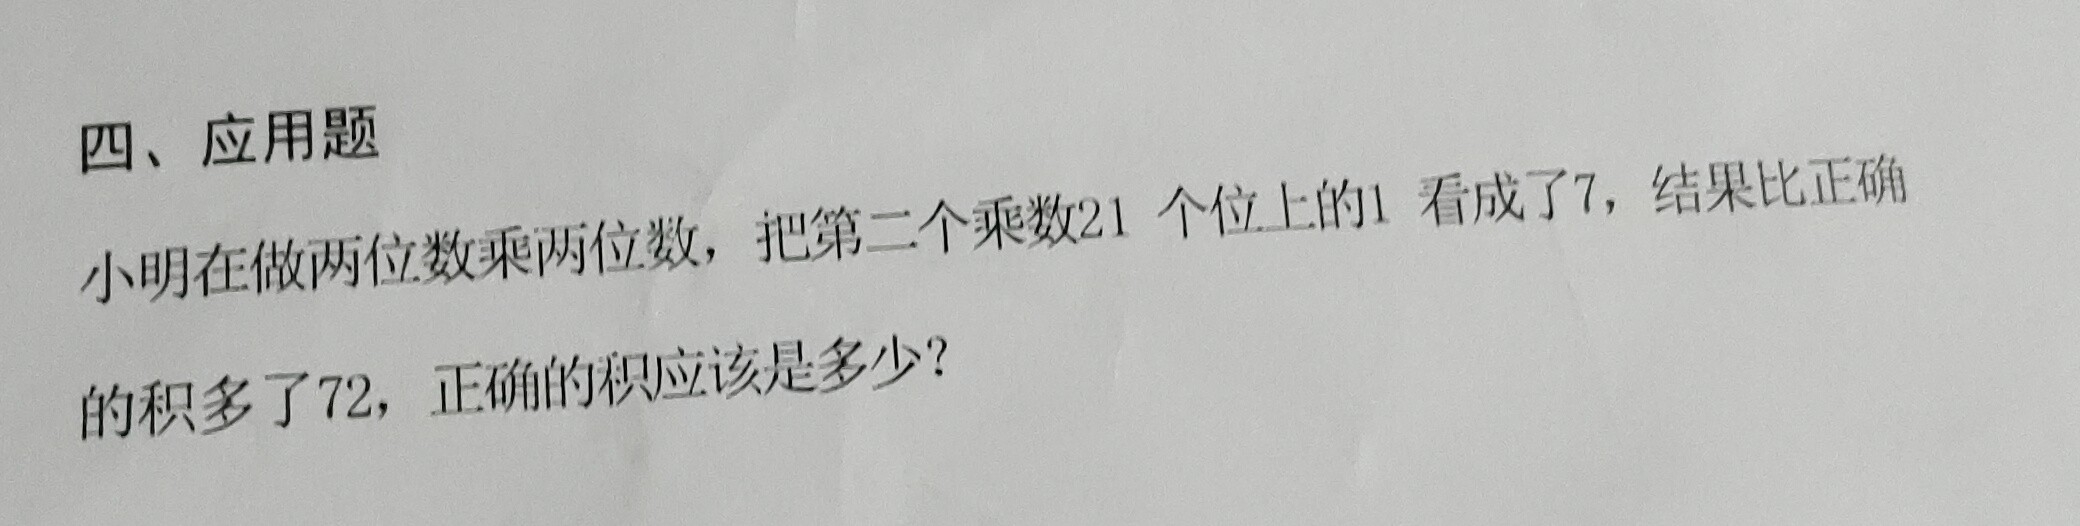 四、应用题
小明在做两位数乘两位数，把第二个乘数21 个位上的1 看成了7，结果比正确
的积多了72，正确的积应该是多少？